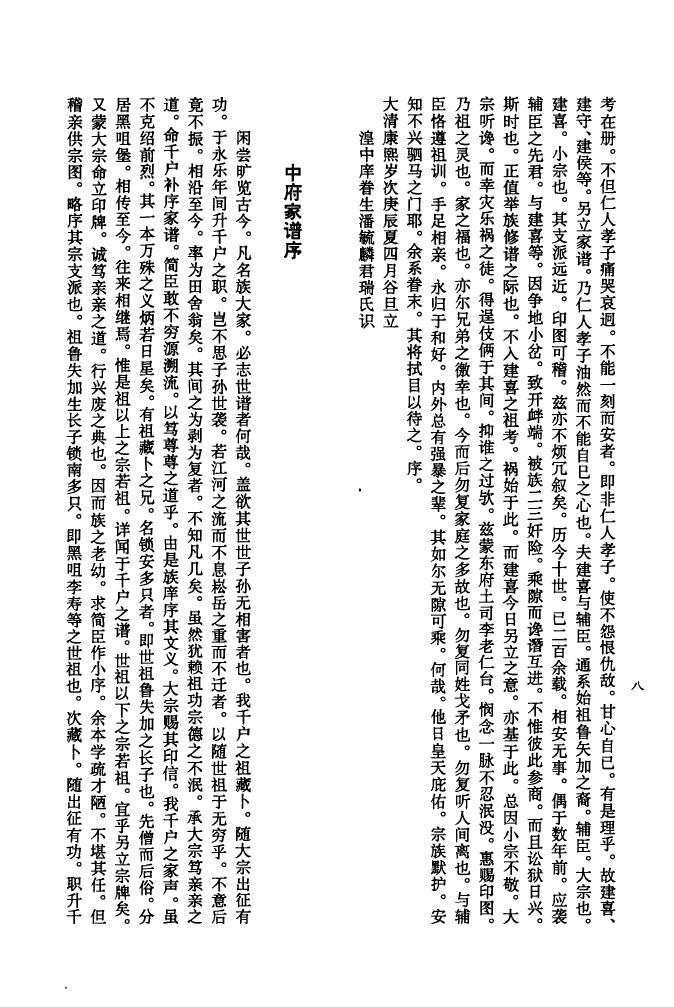 考在册。不但仁人孝子痛哭哀迥。不能一刻而安者。即非仁人孝子。使不怨恨仇敌。甘心自已。有是理乎。故建喜、
建守、建侯等。另立家谱。乃仁人孝子油然而不能自已之心也。夫建喜与辅臣。通系始祖鲁矢加之裔。辅臣。大宗也。
建喜。小宗也。其支派远近。印图可稽。兹亦不烦冗叙矣。历今十世。已二百余载。相安无事。偶于数年前。应袭
辅臣之先君。与建喜等。因争地小岔。致开衅端。被族二三奸险。乘隙而谗潛互进。不惟彼此参商。而且讼狱日兴。
斯时也。正值举族修谱之际也。不入建喜之祖考。祸始于此。而建喜今日另立之意。亦基于此。总因小宗不敬。大
宗听谗。而幸灾乐祸之徒。得逞伎俩于其间。抑谁之过欤。兹蒙东府土司李老仁台。悯念一脉不忍泯没。惠赐印图。
乃祖之灵也。家之福也。亦尔兄弟之徼幸也。今而后勿复家庭之多故也。勿复同姓戈矛也。勿复听人间离也。与辅
臣恪遵祖训。手足相亲。永归于和好。内外总有强暴之辈。其如尔无隙可乘。何哉。他日皇天庇佑。宗族默护。安
知不兴驷马之门耶。余系眷末。其将拭目以待之。序。
大清康熙岁次庚辰夏四月谷旦立
湟中庠眷生潘毓麟君瑞氏识
中府家谱序
闲尝旷览古今。凡名族大家。必志世谱者何哉。盖欲其世世子孙无相害者也。我千户之祖藏卜。随大宗出征有
功。于永乐年间升千户之职。岂不思子孙世袭。若江河之流而不息崧岳之重而不迁者。以随世祖于无穷乎。不意后
竟不振。相沿至今。率为田舍翁矣。其间之为剥为复者。不知凡几矣。虽然犹赖祖功宗德之不泯。承大宗笃亲亲之
道。命千户补序家谱。简臣敢不穷源溯流。以笃尊尊之道乎。由是族庠序其文义。大宗赐其印信。我千户之家声。虽
不克绍前烈。其一本万殊之义炳若日星矣。有祖藏卜之兄。名锁安多只者。即世祖鲁失加之长子也。先僧而后俗。分
居黑咀堡。相传至今。往来相继焉。惟是祖以上之宗若祖。详闻于千户之谱。世祖以下之宗若祖。宜乎另立宗牌矣。
又蒙大宗命立印牌。诚笃亲亲之道。行兴废之典也。因而族之老幼。求简臣作小序。余本学疏才陋。不堪其任。但
稽亲供宗图。略序其宗支派也。祖鲁失加生长子锁南多只。即黑咀李寿等之世祖也。次藏卜。随出征有功。职升千
八